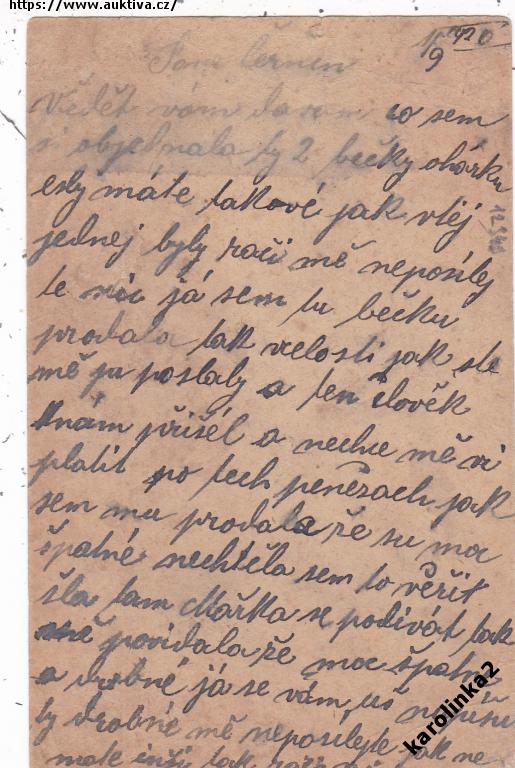 https://www.auktiva.cz/
11/9 920
Pane Černín
Vědět vám dávám co sem
si objednala ty 2 bečky okůrku
esly máte takové jak vtéj
jednej byly rači mě neposíley
te nic já sem tu bečku
prodala tak velosti jak ste
mě ju poslaly a ten človék
knám přišél a nechce mě vi
platit po tech penězach jak
sem mu prodala že su moc
špatné nechtěla sem to věřit
šla tam Mařka se podívát tak
mně povidala že moc špatné
a drobné já se vám už
ty drobné mě neposílejte jak ne
mate inší tak
12.9.40
karolinka2